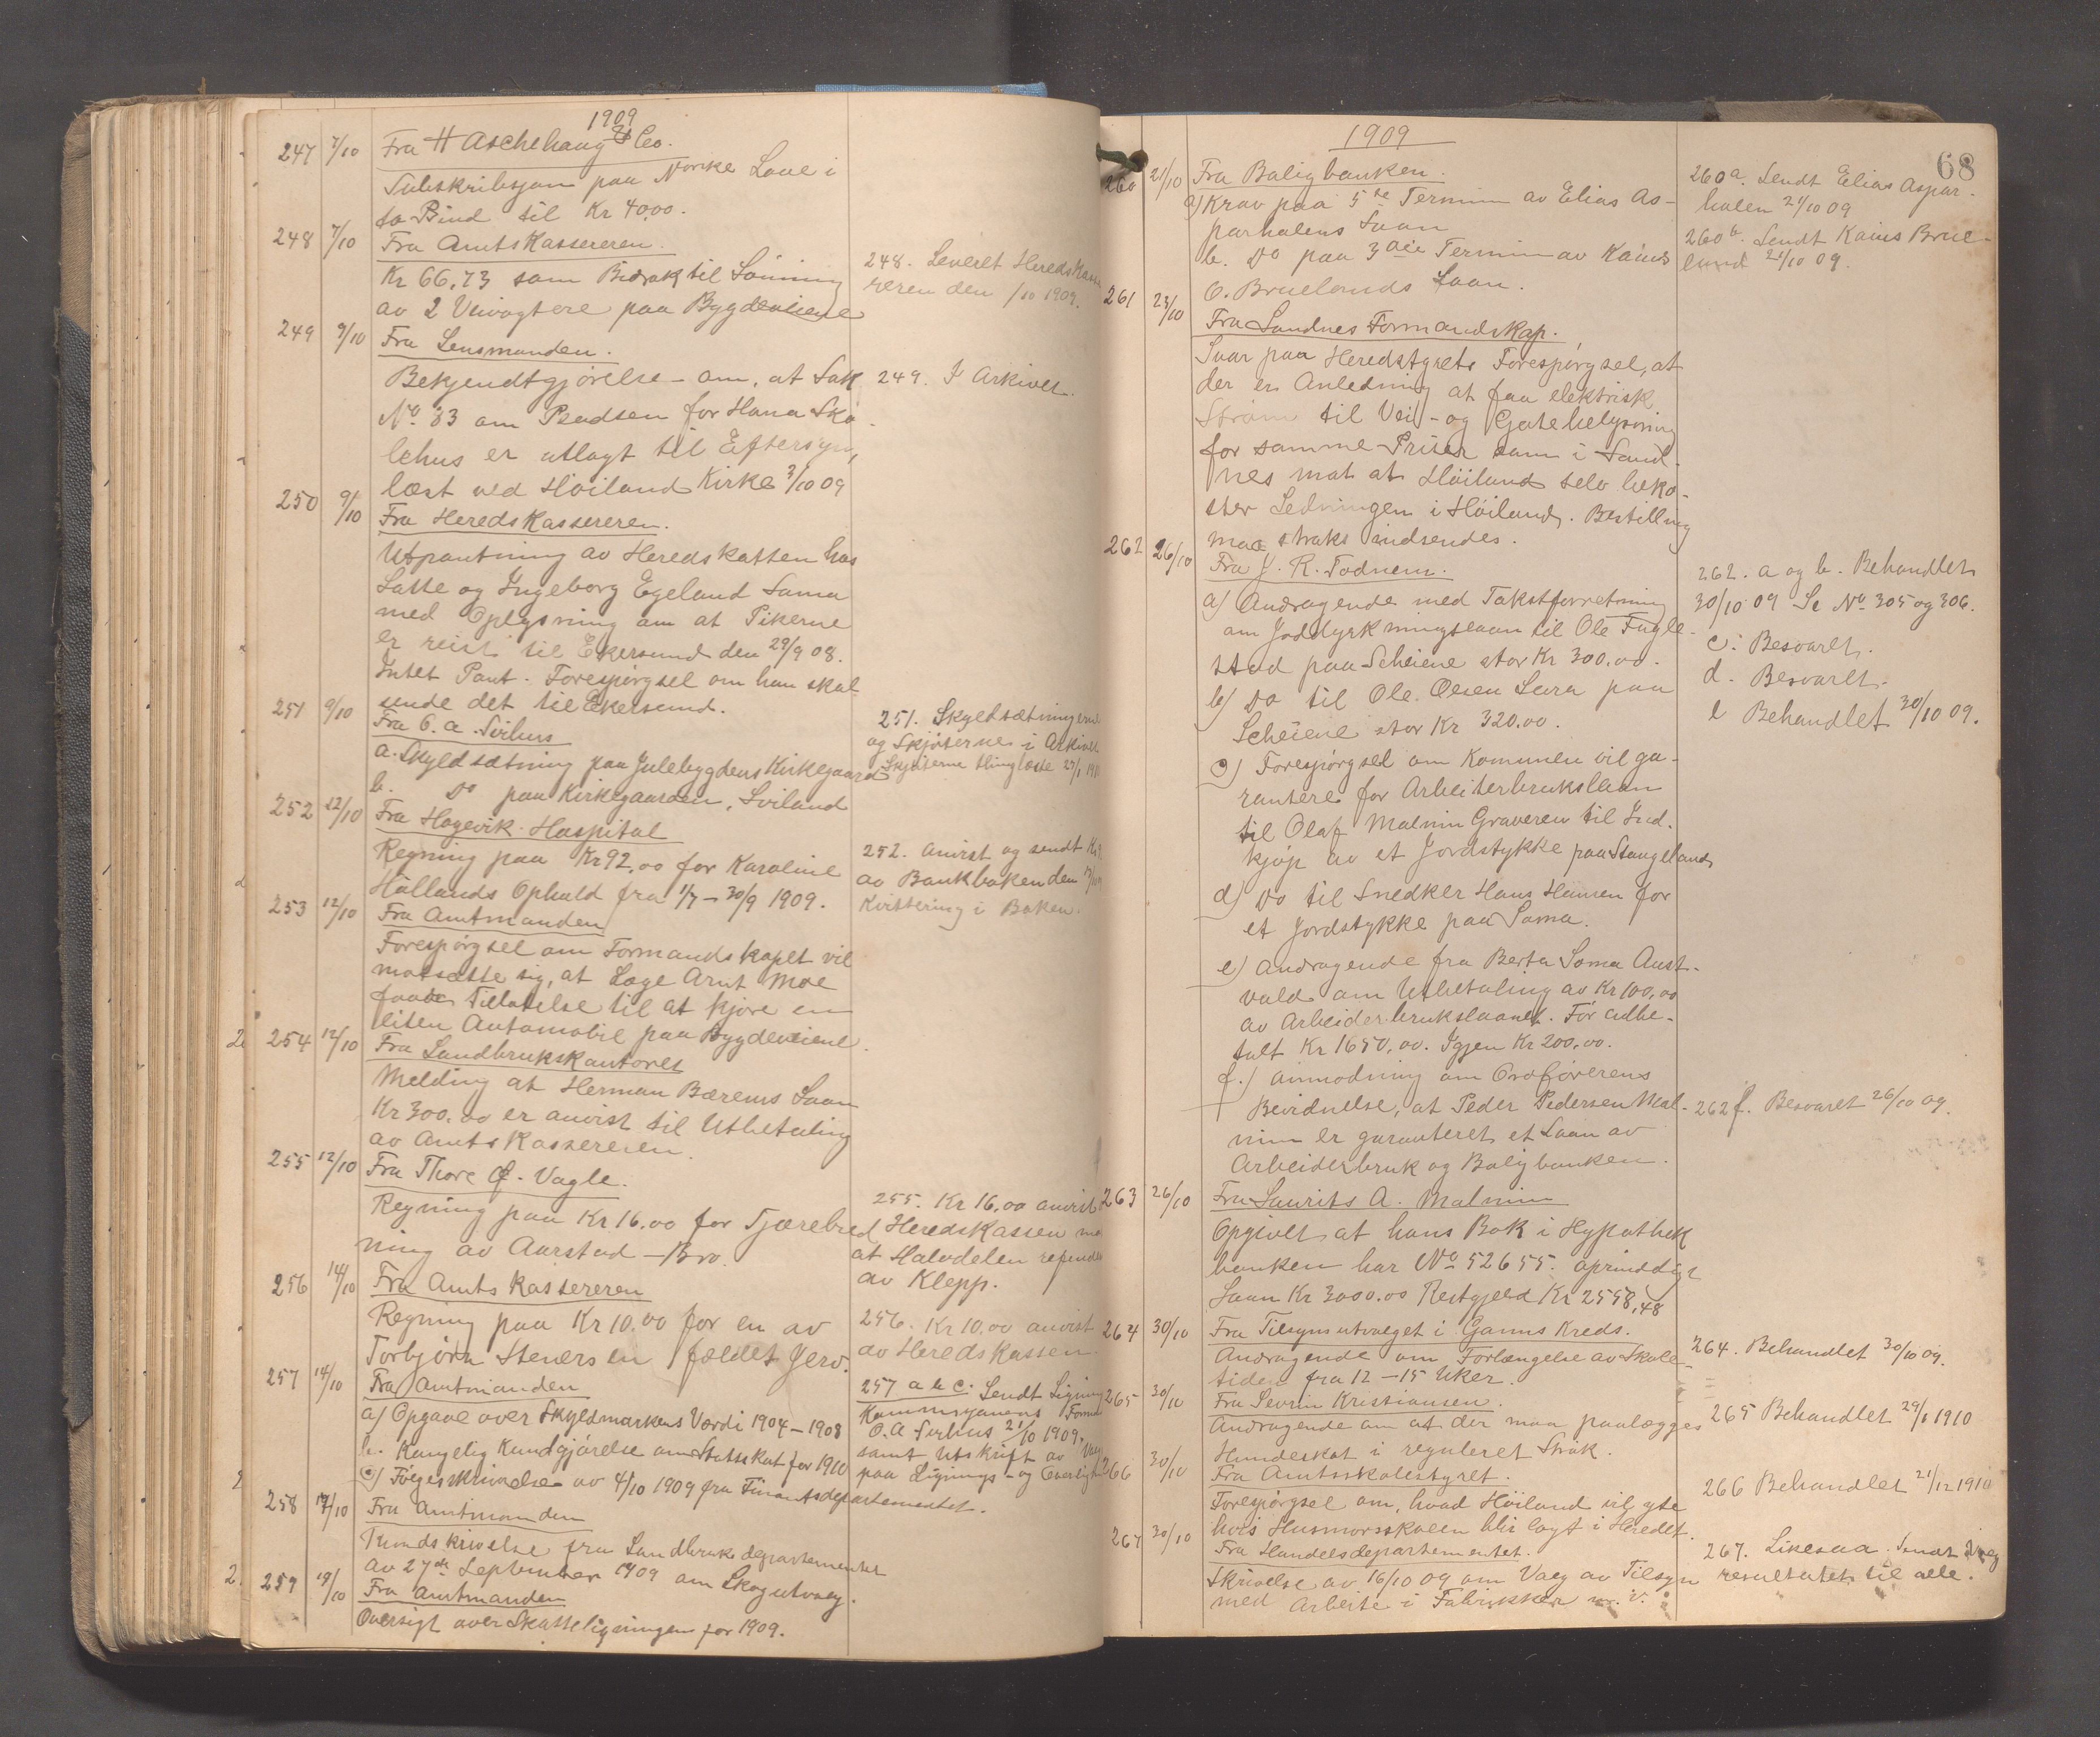 1909
247 7/10 Fra H Aschehaug & Co.
Subskribsjon paa Norske Love i
to Bind til Kr 40,00.
248 7/10 Fra Amtskassereren.
Kr 66,73 som Bidrak til Lönning
av 2 Veivogtere paa Bygdeveiene
248. Leveret Heredskasse
reren den /10 1909.
249 9/10 Fra Lensmanden.
Bekjendtgjörelse om, at Sak
No 33 om Pladsen for Hana Sko-
lehus er utlagt til Eftersyn,
læst ved Höiland Kirke 3/10 09
249. I Arkivet.
250 9/10 Fra Heredskassereren.
Utpantning av Heredskatten hos
Lotte og Ingeborg Egeland Soma
med Oplysning om at Pikerne
er reist til Ekersund den 29/9 08.
Intet Pant. Forespörgsel om han skal
sende det til Ekersund.
251 9/10 Fra O. A. Sirhus
a. Skyldsætning paa Julebygdens Kirkegaard
b. Do paa Kirkegaarden, Sviland
251. Skyldsætningerne
og Skjöterne i Arkivet
Skjöterne thinglæste
252 12/10 Fra Hagevik Hospital
Regning paa Kr 92,00 for Karoline
Hallands Ophold fra 1/7 – 30/9 1909.
252. Anvist og sendt
av Bankboken den
Kvittering i Boken.
253 12/10 Fra Amtmanden
Forespörgsel om Formandskapet vil
motsætte sig, at Læge Arnt Moe
faar Tillatelse til at kjöre en
liten Automobil paa Bygdeveiene.
254 12/10 Fra Landbrukskontoret
Melding at Herman Bærems Laan
Kr 300,00 er anvist til Utbetaling
av Amtskassereren.
255 12/10 Fra Thore O. Vagle.
Regning paa Kr 16,00 for Tjærebred
ning av Aarstad – Bro.
255. Kr 16,00 anvist
Heredskassen mo
at Halvdelen refunde
av Klepp.
256 14/10 Fra Amtskassereren
Regning paa Kr 10,00 for en av
Torbjörn Stenersen fældet Jerv.
256. Kr 10,00 anvist
av Heredskassen.
257 14/10 Fra Amtmanden
a) Opgave over Skyldmarkens Værdi 1904 – 1908
b. Kongelig Kundgjörelse om Statsskat for 1910
c) Fölgeskrivelse av 4/10 1909 fra Finantsdepartementet.
257 a b c. Sendt Ligning
Kommisjonens Form
O. A Sirhus 21/10 1909,
samt Utskrift av Valg
paa Lignings- og Overlign
258 19/10 Fra Amtmanden
Rundskrivelse fra Landbruksdepartementet
av 27de September 1909 om Skogutvalg.
259 19/10 Fra Amtmanden
Oversigt over Skatteligningen for 1909.
1909
68
260 21/10 Fra Boligbanken.
a) Krav paa 5te Termin av Elias As-
parhalens Laan
b. Do paa 3die Termin av Kaius
O. Bruelands Laan.
260 a. Sendt Elias Aspar-
halen 21/10 09
260 b. Sendt Kaius Brue-
land 21/10 09.
261 23/10 Fra Sandnes Formandskap.
Svar paa Heredstyrets Forespörgsel, at
der er Anledning at faa elektrisk
Ström til Vei- og Gatebelysning
for samme Priser som i Sand-
nes mot at Höiland selv beko-
ster Ledningen i Höiland. Bestilling
maa straks indsendes.
262 26/10 Fra J. R. Todnem.
a) Andragende med Takstforretning
om Jorddyrkningslaan til Ole Fugle-
stad paa Scheiene stor Kr 300,00.
b) Do til Ole Olsen Lura paa
Scheiene stor Kr 320,00.
c) Forespörgsel om Kommunen vil ga-
rantere for Arbeiterbrukslaan
til Olaf Malmin Graveren til Ind-
kjöp av et Jordstykke paa Stangeland
d) Do til Snedker Hans Hansen for
et Jordstykke paa Soma.
e) Andragende fra Berta Soma Aust-
vold om Utbetaling av Kr 100,00
av Arbeiderbrukslaanet. För utbe-
talt Kr 1650,00. Igjen Kr 200,00.
f.) Anmodning om Ordförerens
Bevidnelse, at Peder Pedersen Mal-
min er garanteret et Laan av
Arbeiderbruk og Boligbanken.
262. a og b. Behandlet
30/10 09 Se No 305 og 306.
c. Besvaret.
d. Besvaret.
e Behandlet 30/10 09.
262 f. Besvaret 26/10 09.
263 26/10 Fra Laurits A. Malmin
Opgivet at hans Bok i Hypothek
banken har No 52655. oprinddigt
Laan Kr 3000,00 Restgjeld Kr 2558,48
264 30/10 Fra Tilsynsutvalget i Ganns Kreds.
Andragende om Forlængelse av Skole-
tiden fra 12 – 15 Uker.
264. Behandlet 30/10 09.
265 30/10 Fra Sevrin Kristiansen.
Andragende om at der maa paalægges
Hundeskat i reguleret Strök.
265 Behandlet 29/1 1910
266 30/10 Fra Amtsskolestyret.
Forespörgsel om, hvad Höiland vil yte
hvis Husmorsskolen blir lagt i Heredet.
266 Behandlet 21/12 1910
267 30/10 Fra Handelsdepartementet.
Skrivelse av 16/10 09 om Valg av Tilsyn
med Arbeite i Fabrikker m. v.
267. Likesaa. Sendt Valg
resultatet til alle.